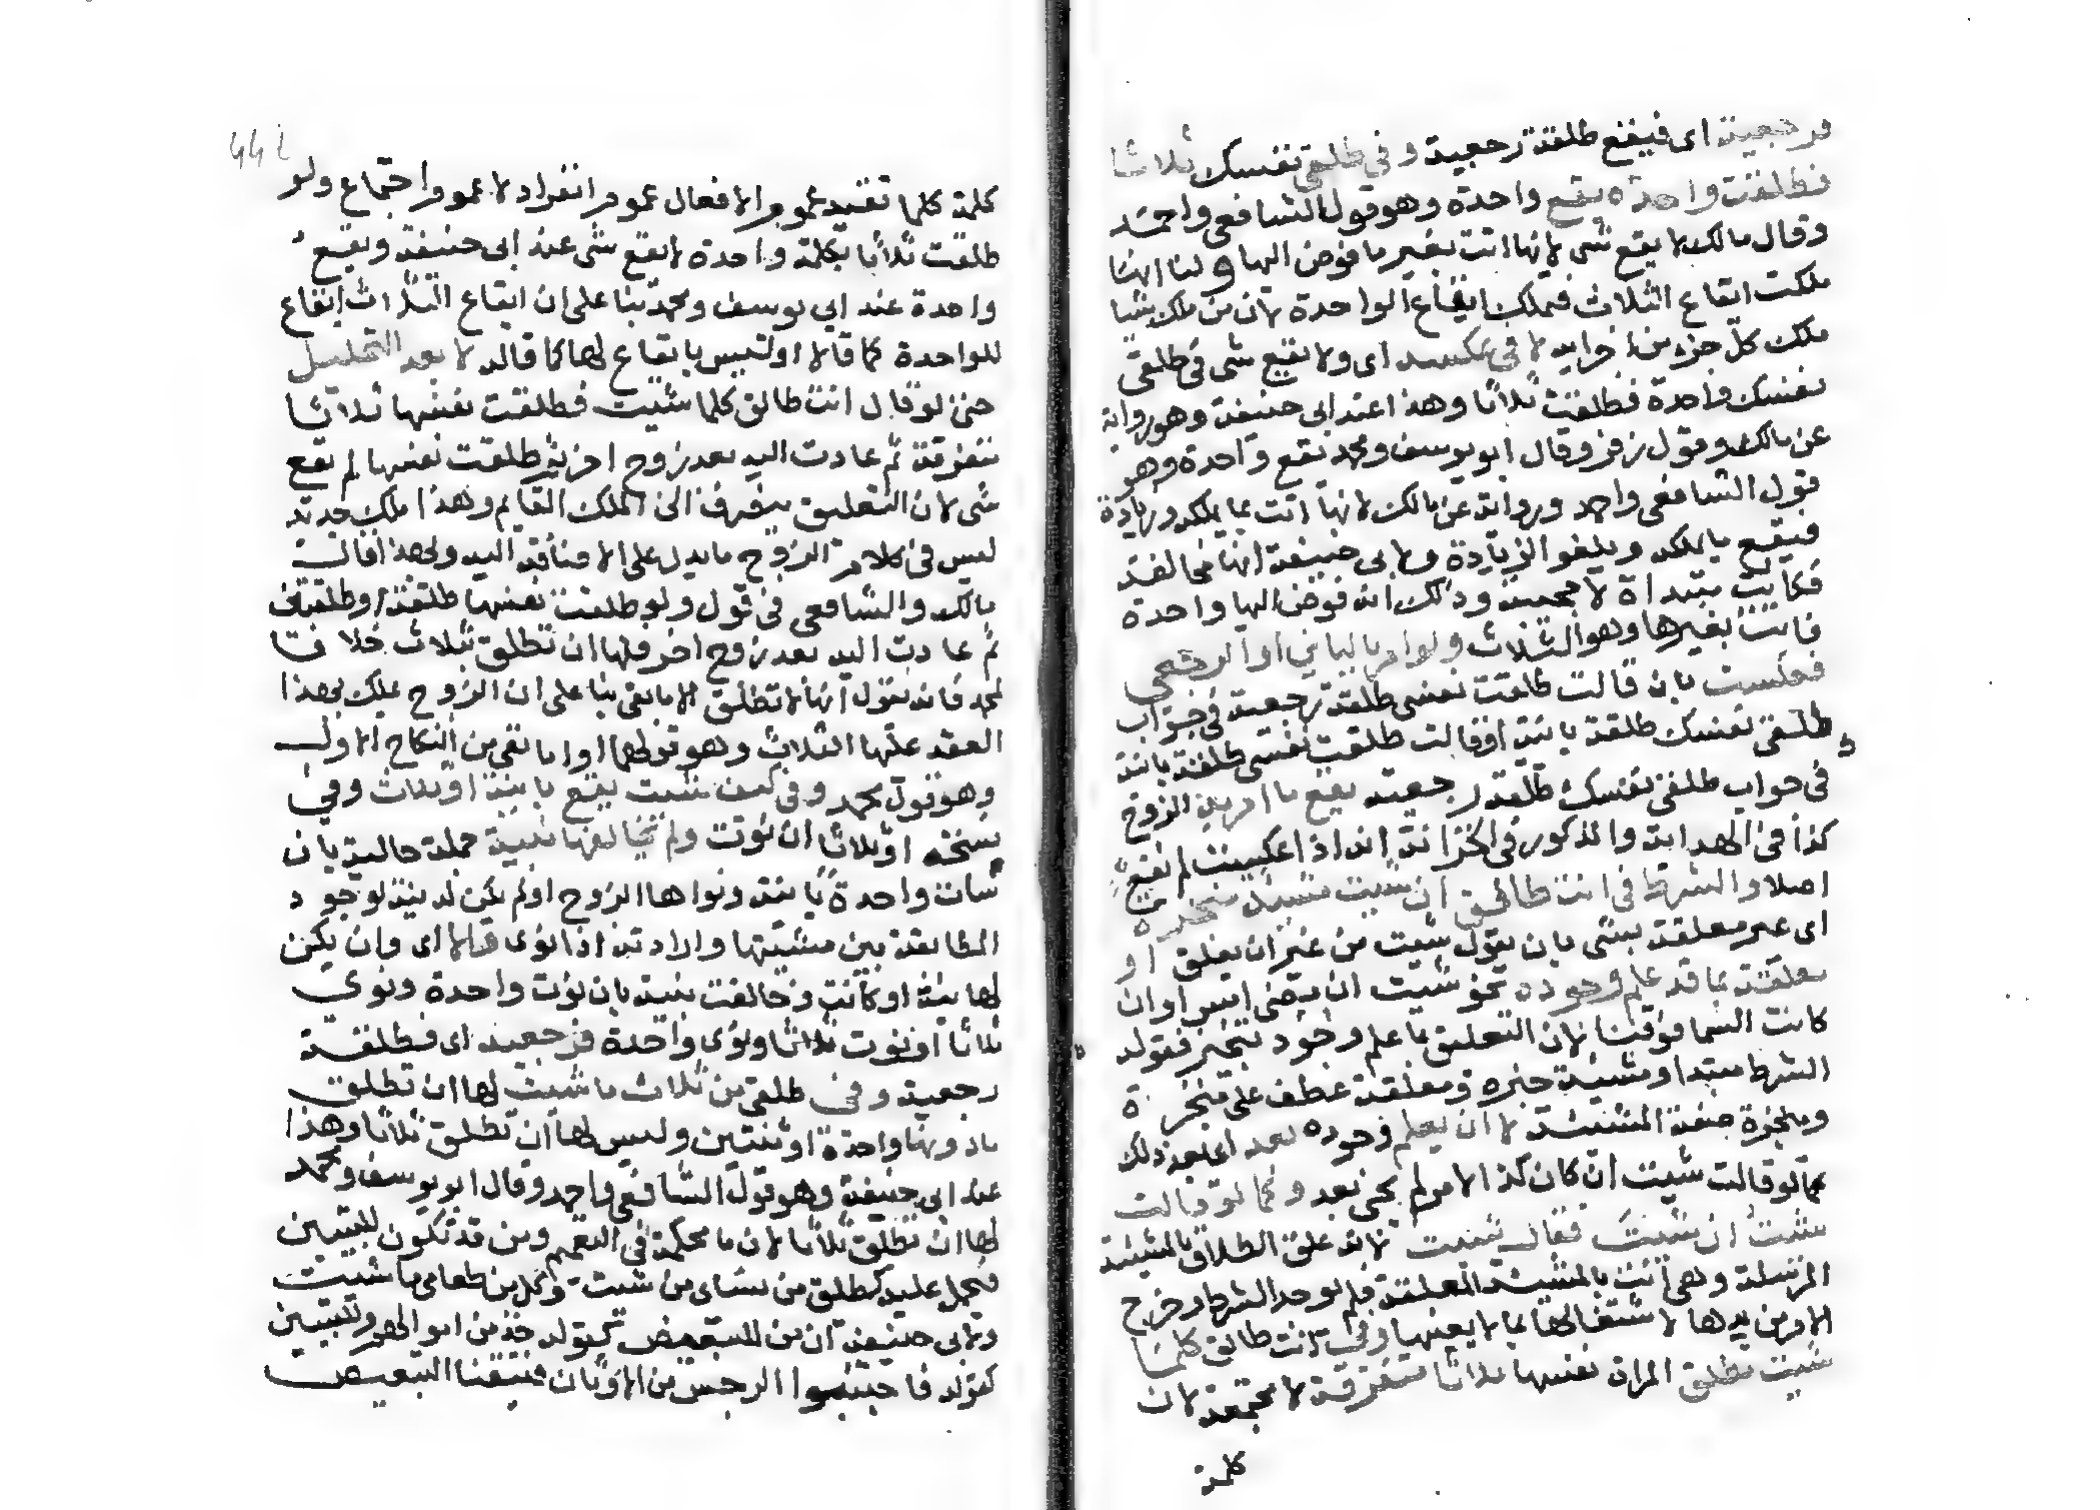 فرجعية اى فيقع طلقة رجعية وفى طلقى نفسك ثلاثا
فطلقت واحدة يقع واحدة وهو قول الشافعى واحمد
وقال مالك لا يقع شى لانها اتت بغير ما فوض اليها ولنا انها
ملكت ايقاع الثلاث فتملك ايقاع الواحدة لان من ملك شيا
ملك كل جزء من اجزايه لا فى عكسه اى ولا يقع شى فى طلقى
نفسك واحدة فطلقت ثلاثا وهذا عند ابى حنيفة وهو رواية
عن مالك وقول زفر وقال ابو يوسف ومحمد يقع واحدة وهو
قول الشافعى واحمد ورواية عن مالك لانها اتت بما يملكه وزيادة
فيقع ما يملكه ويلغو الزيادة ولابى حنيفة انها مخالفة
فكانت مبتداة لا مجيبة وذلك انه فوض اليها واحدة
فاتت بغيرها وهو الثلاث ولو امر بالباين او الرجعى
فعكست بان قالت طلقت نفسى طلقة رجعية فى جواب
طلقى نفسك طلقة باينة او قالت طلقت نفسى طلقة باينة
فى جواب طلقى نفسك طلقة رجعية يقع ما امر به الزوج
كذا فى الهداية والمذكور فى الخزانة انه اذا عكست لم يقع
اصلا والشرط فى انت طالق ان شيت مشية منجزة
اى غير معلقة بشى بان يقول شيت من غير ان يعلق او
معلقة بما قد علم وجوده نحو شيت ان مضى امس او ان
كانت السما فوقنا لان التعليق بما علم وجوده تنجيز فقوله
الشرط مبتدا ومشية خبره ومعلقة عطف على منجزة
ومنجزة صفة المشية لا ان يعلم وجوده بعد اى بعد ذلك
كما لو قالت شيت ان كان كذا لامر لم يجى بعد وكما لو قالت
شيت ان شيت فقال شيت لانه علق الطلاق بالمشية
المرسلة وهى اتت بالمشية المعلقة فلم يوجد الشرط وخرج
الامر من يدها لاشتغالها بما لا يعنيها وفى انت طالق كلما
شيت تطلق المراة نفسها ثلاثا متفرقة لا مجتمعة لان
كلمة
كلمة كلما تفيد عموم الافعال عموم انفراد لا عموم اجتماع ولو
طلقت ثلاثا بكلمة واحدة لا يقع شى عند ابى حنيفة ويقع
واحدة عند ابى يوسف ومحمد بنا على ان ايقاع الثلاث ايقاع
للواحدة كما قالا او ليس بايقاع لها كما قاله لا بعد التحليل
حتى لو قال انت طالق كلما شيت فطلقت نفسها ثلاثا
متفرقة ثم عادت اليه بعد زوج اخر فطلقت نفسها لم يقع
شى لان التعليق ينصرف الى الملك القايم وهذا ملك جديد
ليس فى كلام الزوج ما يدل على الاضافة اليه ولهذا قال
مالك والشافعى فى قول ولو طلقت نفسها طلقة او طلقتين
ثم عادت اليه بعد زوج اخر فلها ان تطلق ثلاث خلافا
لمحمد فانه يقول انها لا تطلق الا ما بقى بنا على ان الزوج يملك بهذا
العقد عليها الثلاث وهو قولهما او ما بقى من النكاح الاول
وهو قول محمد وفى كيف شيت يقع باينة او ثلاث وفى
نسخة او ثلاثا ان نوت ولم تخالفها نيته جملة حالية بان
شات واحدة باينة ونواها الزوج او لم يكن له نية لوجود
المطابقة بين مشيتها وارادته اذا نوى والا اى وان لم يكن
لها نية او كانت وخالفت نيته بان نوت واحدة ونوى
ثلاثا او نوت ثلاثا ونوى واحدة فرجعية اى فطلقة
رجعية وفى طلقى من ثلاث ما شيت لها ان تطلق
ما دونها واحدة او ثنتين وليس لها ان تطلق ثلاثا وهذا
عند ابى حنيفة وهو قول الشافعى واحمد وقال ابو يوسف ومحمد
لها ان تطلق ثلاثا لان ما محكمة فى التعميم ومن قد تكون للتبيين
فحمل عليه كطلق من نساى من شيت وكل من طعامى ما شيت
ولابى حنيفة ان من للتبعيض كقوله خذ من اموالهم وللتبيين
كقوله فاجتنبوا الرجس من الاوثان فتيقنا التبعيض